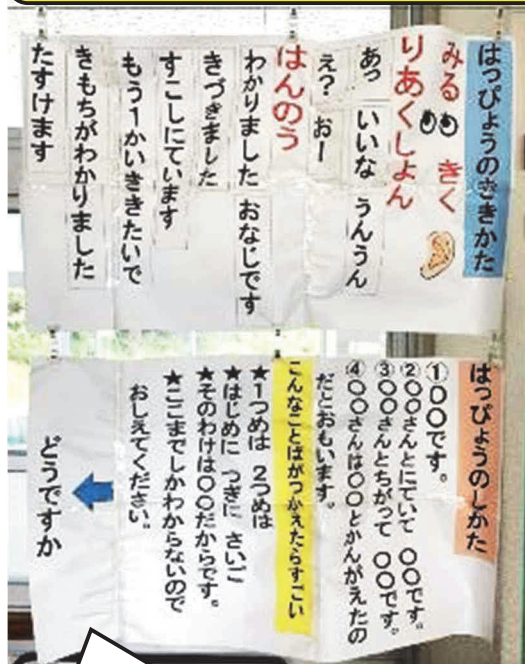 はっぴょうのききかた
みる きく
りあくしょん
あっ いいな うんうん
え? おー
はんのう
わかりました おなじです
きづきました
すこしにています
もう1かいききたいで
きもちがわかりました
たすけます
はっぴょうのしかた
①○○です。
②○○さんとにていて ○○です。
③○○さんとちがって ○○です。
④○○さんは○○とかんがえたの
だとおもいます。
こんなことばがつかえたらすごい
★1つめは 2つめは
★はじめに つぎに さいご
★そのわけは○○だからです。
★ここまでしかわからないので
おしえてください。
どうですか